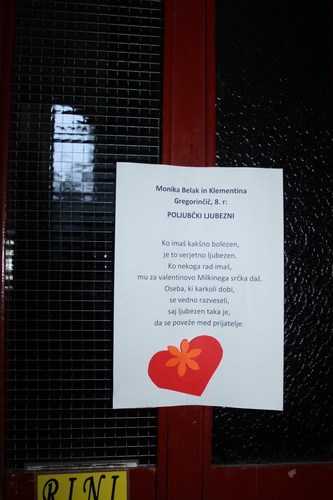 Monika Belak in Klementina
Gregorinčič, 8. r:
POLJUBČKI LJUBEZNI
Ko imaš kakšno bolezen,
je to verjetno ljubezen.
Ko nekoga rad imaš,
mu za valentinovo Milkinega srčka daš.
Oseba, ki karkoli dobi,
se vedno razveseli,
saj ljubezen taka je,
da se poveže med prijatelje.
RINI